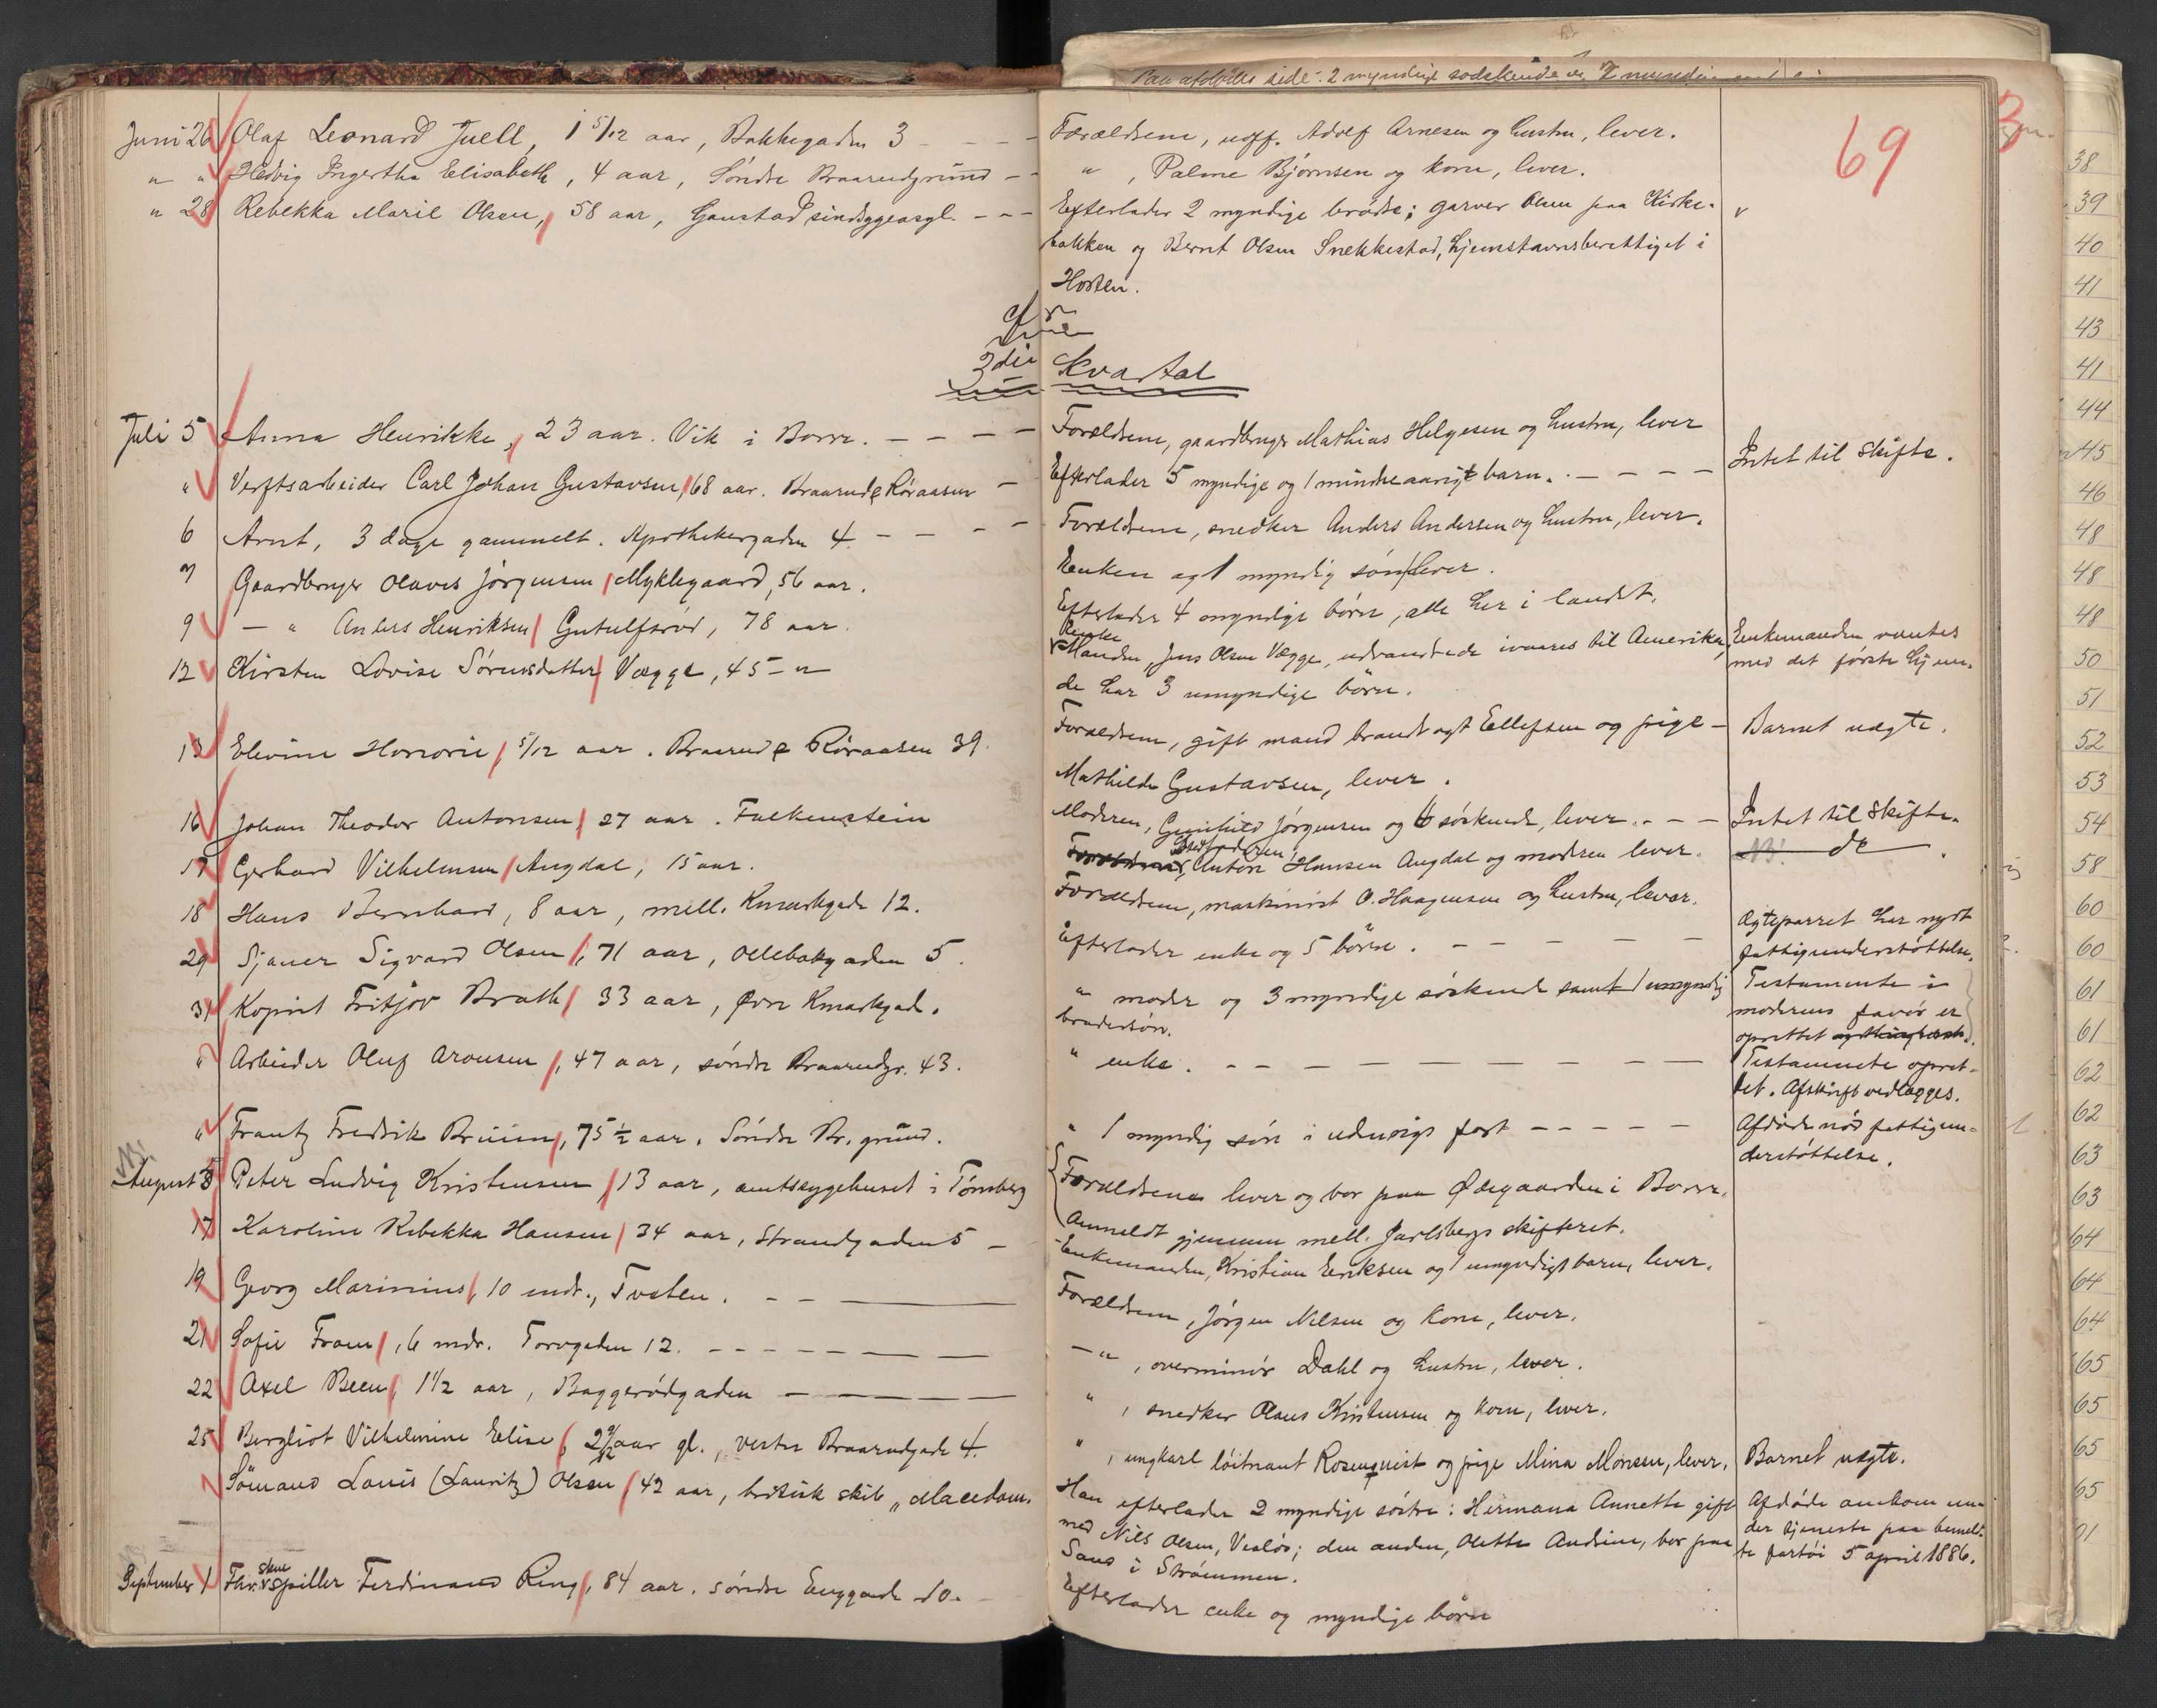 Paa afdøddes side: 2 myndige sødskende og
69
Juni 26 Olaf Leonard Juell, 1 5/12 aar, Bakkegaden 3 - - - Forældrene, uoff. Adolf Arnesen og hustru, lever.
" " Hedvig Ingertha Elisabeth, 4 aar, Søndre Braarudgrund - - " , Palme Bjørnsen og kone, lever.
" 28 Rebekka Marie Olsen, 58 aar, Gaustad sindsygeasyl. - - - Efterlader 2 myndige brødre; garver Olsen paa Kirke-
bakken og Bernt Olsen Snekkestad, hjemstavnsberettiget i
Horten.
3die Kvartal
Juli 5 Anna Henrikke, 23 aar. Vik i Borre. - - - - Forældrene, gaardbruger Mathias Helgesen og hustru, lever
" Verftsarbeider Carl Johan Gustavsen, 68 aar. Braarud & Røraasen - Efterlader 5 myndige og 1 mindreaarigt barn. - - - - Intet til skifte.
6 Arnt, 3 dage gammelt. Apothekergaden 4 - - - - Forældrene, snedker Anders Andersen og hustru, lever.
7 Gaardbruger Olaves Jørgensen Myklegaard, 56 aar. Enken og 1 myndig søn lever.
9 - " Anders Henriksen Gutulfsrød, 78 aar. Efterlader 4 myndige børn, alle her i landet.
12 Kirsten Lovise Sørensdatter Vægge, 45 - " Manden, Jens Olsen Vægge, udvandrede ivaares til Amerika, Enkemanden ventes
med det første hjem.
de har 3 umyndige børn.
13 Elevine Honorie, 5/12 aar. Braarud & Røraasen 39. Forældrene, gift mand brandvagt Ellefsen og pige - Barnet uægte.
Mathilde Gustavsen, lever.
16 Johan Theodor Antonsen, 27 aar. Falkenstein Moderen, Gunhild Jørgensen og 6 søskende, lever. - - - Intet til skifte.
17 Gerhard Vilhelmsen Angdal, 15 aar. Stedfaderen, Anton Hansen Angdal og moderen lever. do
18 Hans Bernhard, 8 aar, mell. Kmarkgade 12. Forældrene, maskinist O. Haagensen og hustru, lever.
29 Sjauer Sigvard Olsen, 71 aar, Ollebakgaden 5. Efterlader enke og 5 børn. - - - - - Ægteparret har nydt
fattigunderstøttelse.
31 Kopist Fritjov Brath, 33 aar, Øvre Kmarkgad. " moder og 3 myndige søskende samt 1 umyndig Testamente i
brodersøn. moderens favør er
oprettet
" Arbeider Oluf Aronsen, 47 aar, søndre Braarudgr. 43. " enke. - - - - - - - - Testamente opret-
tet. Afskrift vedlægges.
" Frantz Fredrik Bruun, 75 1/2 aar, Søndre Br. grund. " 1 myndig søn i udenrigs fart - - - - - Afdøde nød fattigun-
derstøttelse.
NB!
August 3 Peter Ludvig Kristensen, 13 aar, amtssygehuset i Tønsberg Forældrene lever og bor paa Ødegaarden i Borre.
Anmeldt gjennem mell. Jarlsbergs skifteret.
17 Karoline Rebekka Hansen, 34 aar, Strandgaden 5 - Enkemanden, Kristian Eriksen og 1 umyndigt barn, lever.
19 Georg Marinius, 10 mdr., Tveten. - - Forældrene, Jørgen Nilsen og kone, lever.
21 Sofie Fram, 6 mdr. Torvgaden 12. - - - - - " , overminør Dahl og hustru, lever.
22 Axel Been, 1 1/2 aar, Baggerødgaden - - - - " , snedker Olaus Kristensen og kone, lever.
25 Bergliot Vilhelmine Elise, 2 9/12 aar gl., vestre Braarudgade 4. " , ungkarl løitnant Rosenqvist og pige Mina Monsen, lever. Barnet uægte.
Sømand Louis (Lauritz) Olsen, 42 aar, britisk skib "Macedon. Han efterlader 2 myndige søstre: Hermana Annette gift Afdøde ankom un-
med Nils Olsen, Vealøs; den anden, Olette Andrine, bor paa der tjeneste paa bemeld-
Sand i Strømmen. te fartøi 5 april 1886.
September 1 Fhv. skuespiller Ferdinand Ring, 84 aar. søndre Enggade 10. Efterlader enke og myndige børn
38
39
40
41
43
41
44
45
46
48
48
48
50
51
52
53
54
58
60
60
61
61
62
62
63
63
64
64
64
65
65
65
65